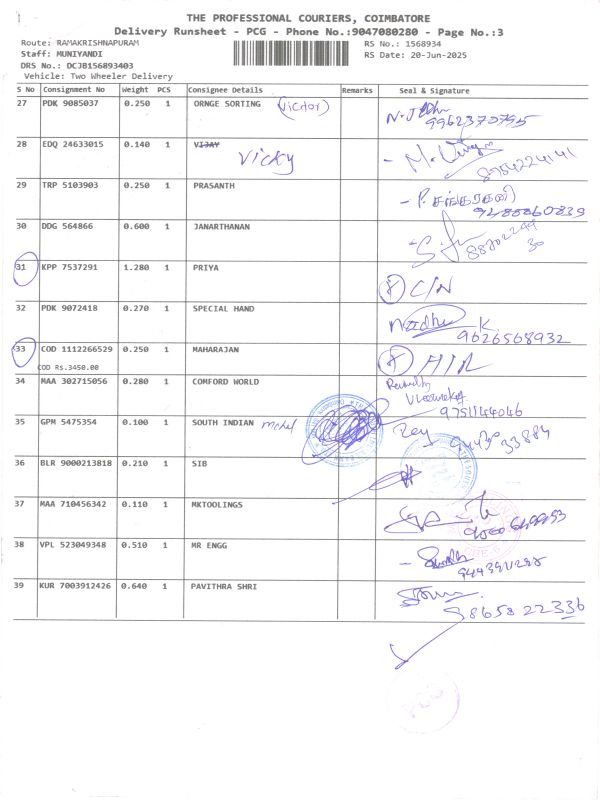 THE PROFESSIONAL COURIERS, COIMBATORE
Delivery Runsheet - PCG - Phone No.:9047080280 - Page No.:3
Route: RAMAKRISHNAPURAM RS No.: 1568934
Staff: MUNIYANDI RS Date: 20-Jun-2025
DRS No.: DCJB156893403
Vehicle: Two Wheeler Delivery
S No Consignment No Weight PCS Consignee Details Remarks Seal & Signature
27 PDK 9085037 0.250 1 ORNGE SORTING (Victor)
9962370795
28 EDQ 24633015 0.140 1 VIJAY
Vicky
8754224141
29 TRP 5103903 0.250 1 PRASANTH
30 DDG 564866 0.600 1 JANARTHANAN
31 KPP 7537291 1.280 1 PRIYA
C/N
32 PDK 9072418 0.270 1 SPECIAL HAND
K
9626568932
33 COD 1112266529 0.250 1 MAHARAJAN
COD Rs.3450.00
34 MAA 302715056 0.280 1 COMFORD WORLD
9751144046
35 GPM 5475354 0.100 1 SOUTH INDIAN
36 BLR 9000213818 0.210 1 SIB
37 MAA 710456342 0.110 1 MKTOOLINGS
38 VPL 523049348 0.510 1 MR ENGG
39 KUR 7003912426 0.640 1 PAVITHRA SHRI
98658 22336